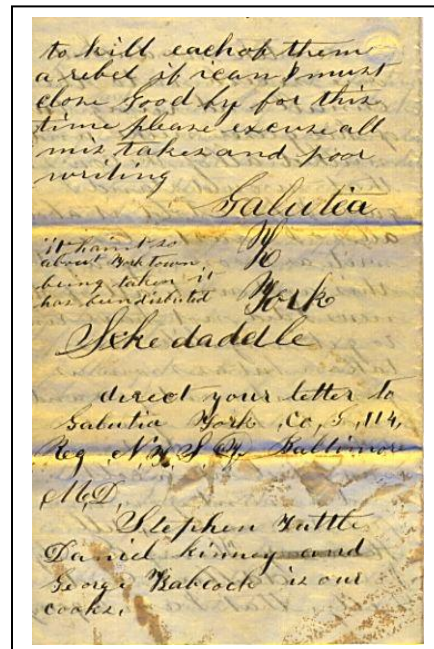 to kill each of them
a rebel if i can I must
close Good by for this
time please excuse all
mis takes and poor
writing
Galutia
it haint so
about York town
being taken it
has bin disbuted
York
Sske daddle
direct your letter to
Galutia York Co, G, 114,
Reg N.Y. S. Baltimore
M.D.
Stephen Tuttle
Daniel Kinney and
George Babcock is our
cooks,